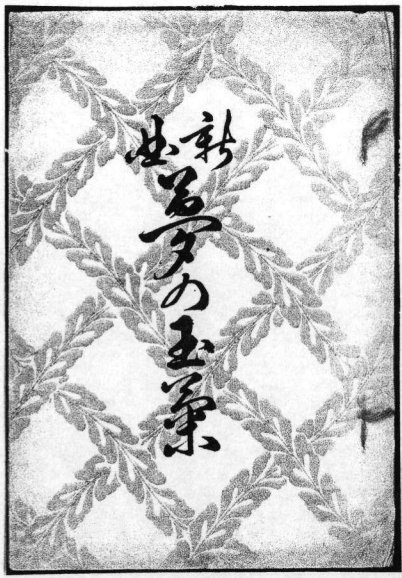 新曲
夢の玉菊